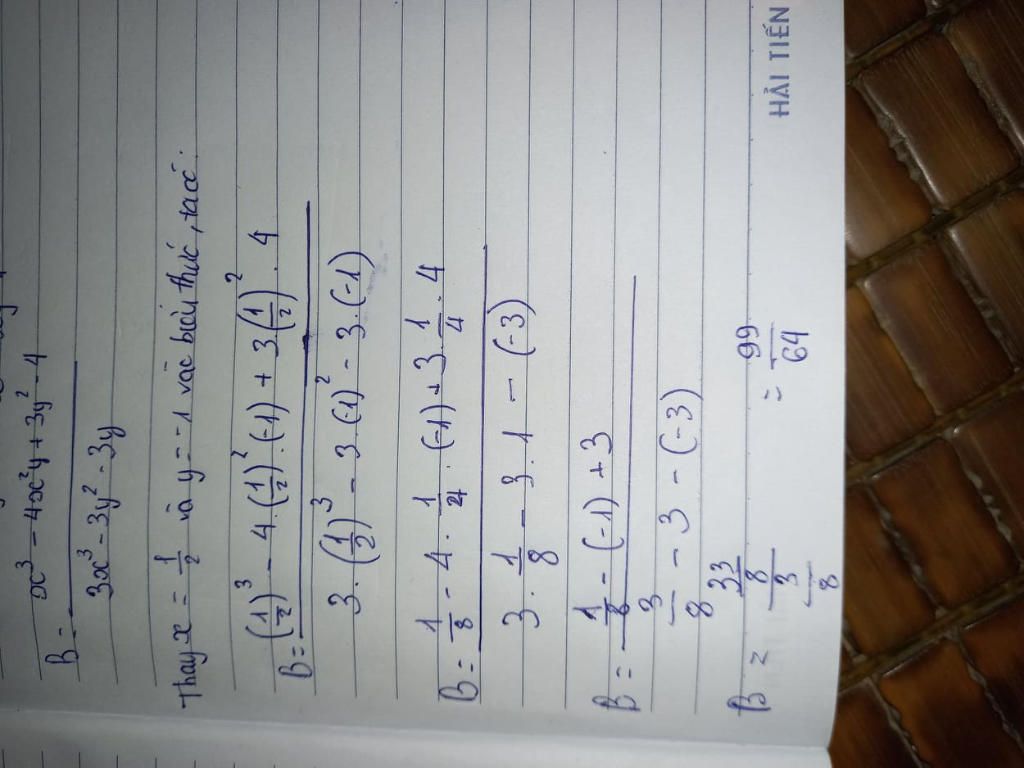 x³ - 4x²y + 3y² - 4
B = ―――――――――
3x³ - 3y² - 3y
Thay x = 1/2 và y = -1 vào biểu thức, ta có:
(1/2)³ - 4.(1/2)².(-1) + 3.(1/2)².4
B = ―――――――――
3.(1/2)³ - 3.(-1)² - 3.(-1)
1/8 - 4.1/4.(-1) + 3.1/4.4
B = ―――――――――
3.1/8 - 3.1 - (-3)
1/8 - (-1) + 3
B = ―――――――――
3/8 - 3 - (-3)
33/8
B = ――― = 99/64
3/8
HẢI TIẾN